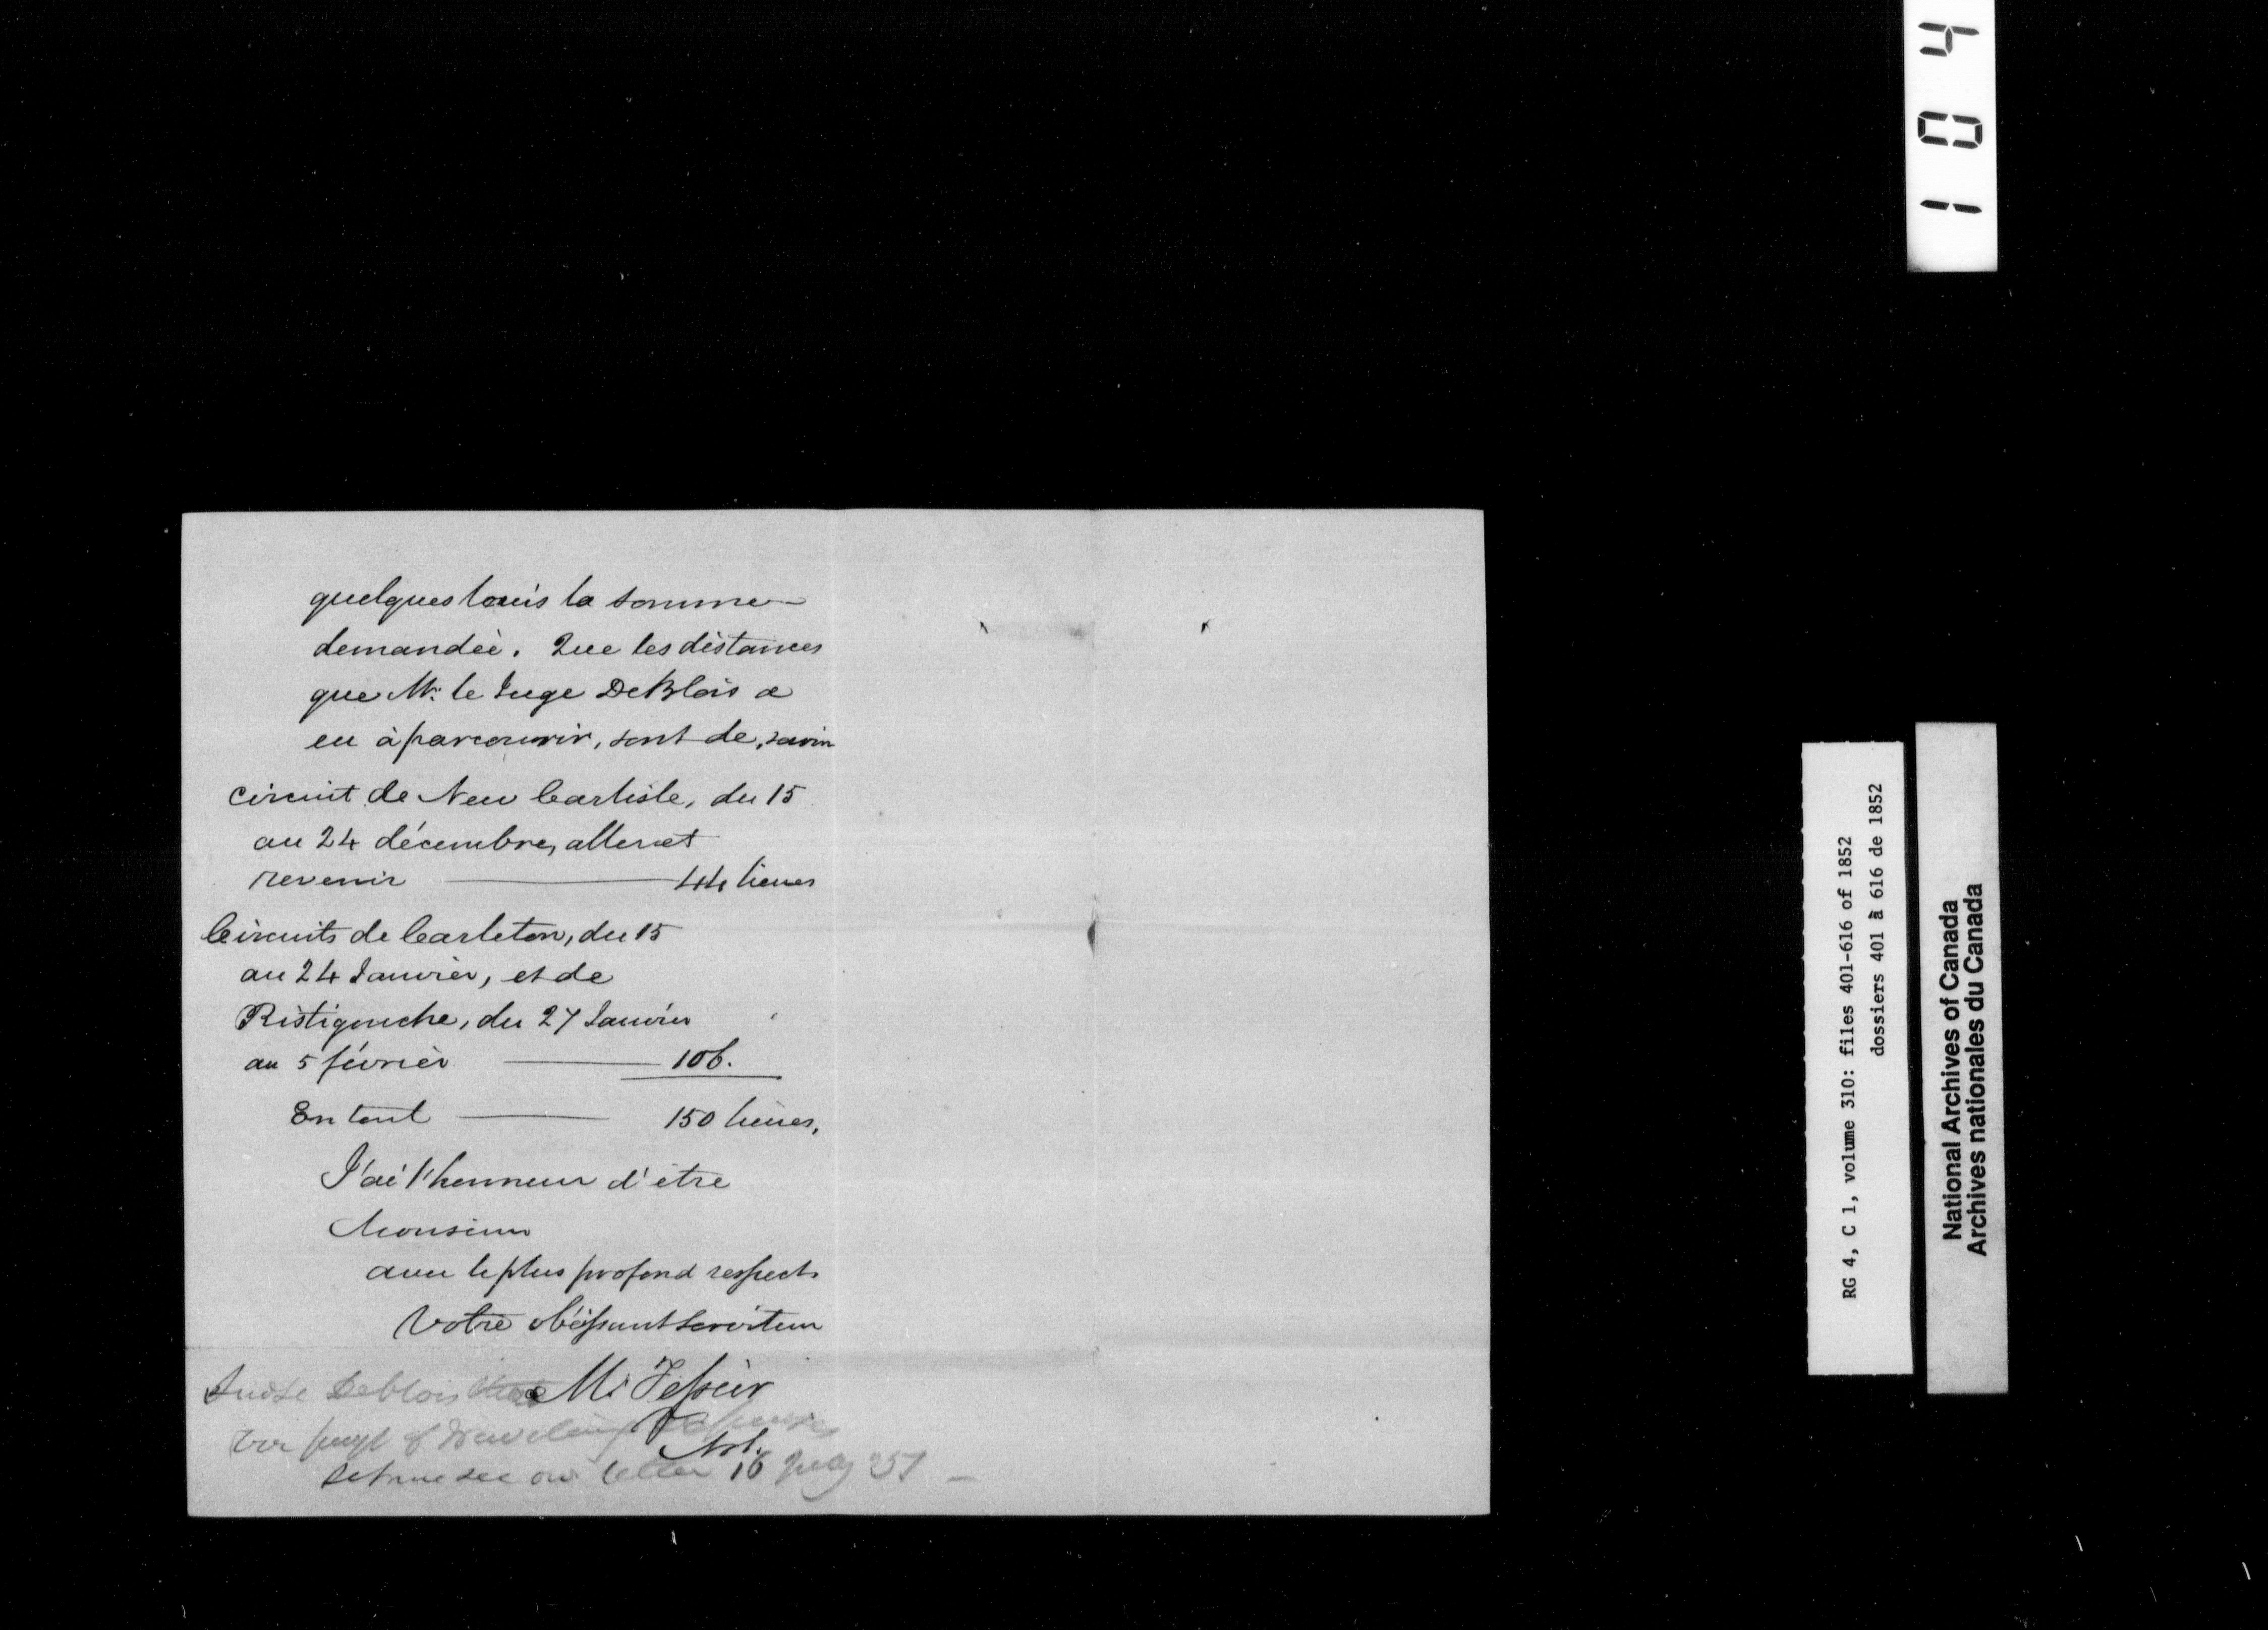 quelques louis la somme
demandée. Que les distances
que Mr. le Juge DeBlois a
eu à parcourir, sont de, savoir
circuit de New Carlisle, du 15
au 24 décembre, aller et
revenir — 44 lieues
Circuits de Carleton, du 15
au 24 Janvier, et de
Ristigouche, du 27 Janvier
au 5 février — 106.
En tout — 150 lieues,
J'ai l'honneur d'être
Monsieur
avec le plus profond respect
Votre obéissant serviteur
M. Tessier
Not.
Judge Deblois
for paygt of travelling expenses
see our letter 16 25
104
RG 4, C 1, volume 310: files 401-616 of 1852
dossiers 401 à 616 de 1852
National Archives of Canada
Archives nationales du Canada